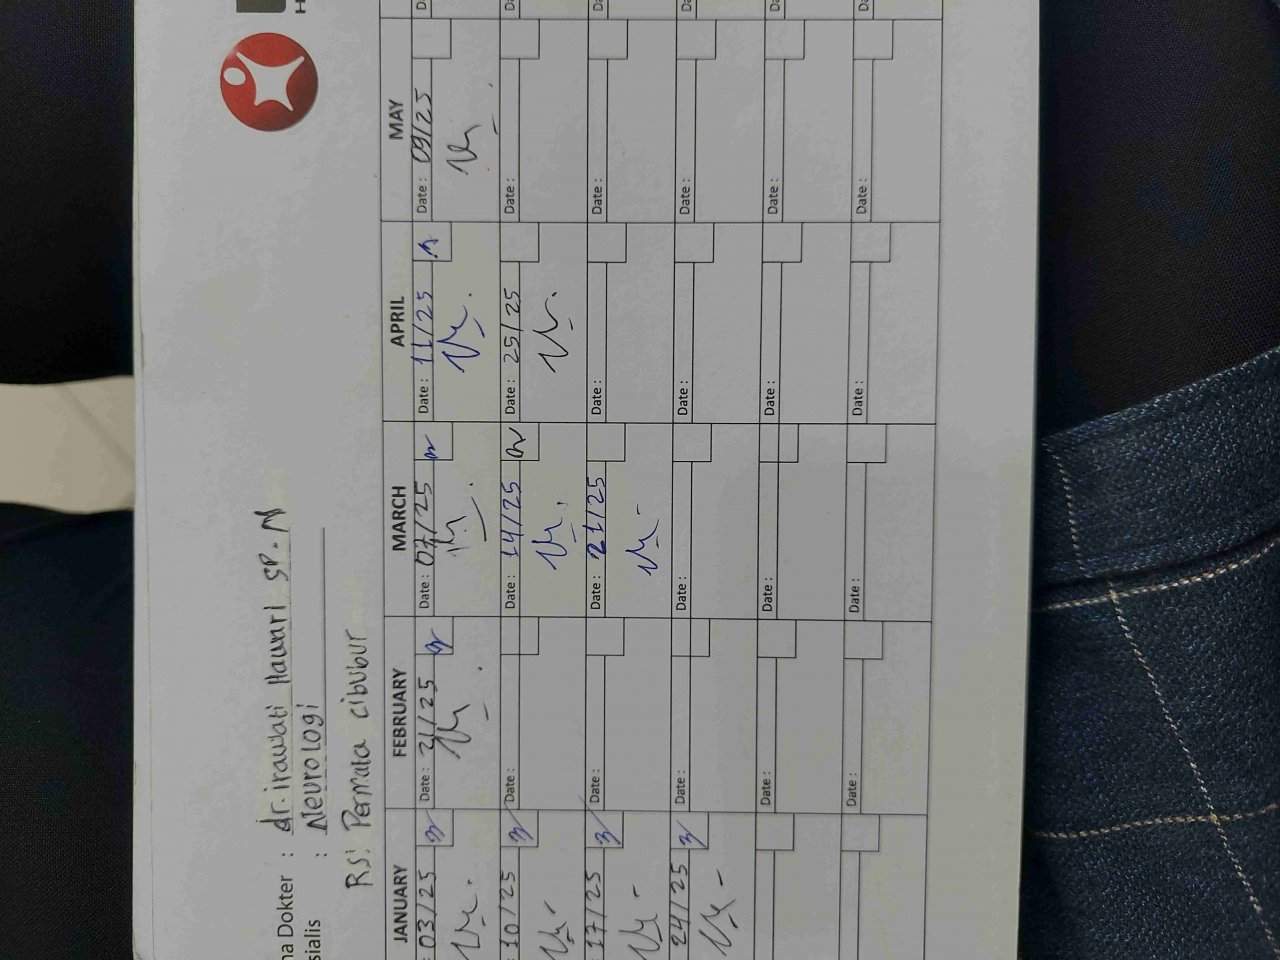 na Dokter : dr. irawati Hawari SP.N
sialis : Neurologi
RS: Permata cibubur
JANUARY FEBRUARY MARCH APRIL MAY
: 03/25 Date : 21/25 Date : 07/25 Date : 11/25 Date : 09/25
: 10/25 Date : Date : 14/25 Date : 25/25 Date :
: 17/25 Date : Date : 21/25 Date : Date :
24/25 Date : Date : Date : Date :
Date : Date : Date : Date :
Date : Date : Date : Date :